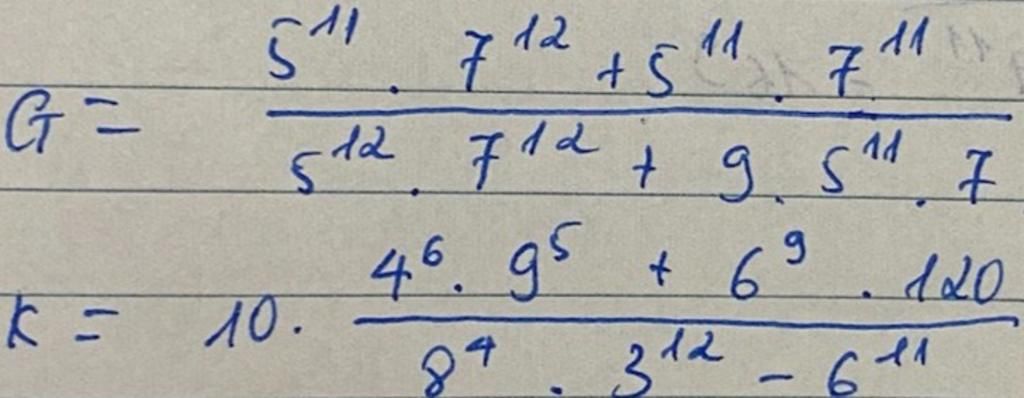 G = \frac{5^{11} . 7^{12} + 5^{11} . 7^{11}}{5^{12} . 7^{12} + 9 . 5^{11} . 7}
K = 10 . \frac{4^{6} . 9^{5} + 6^{9} . 120}{8^{4} . 3^{12} - 6^{11}}